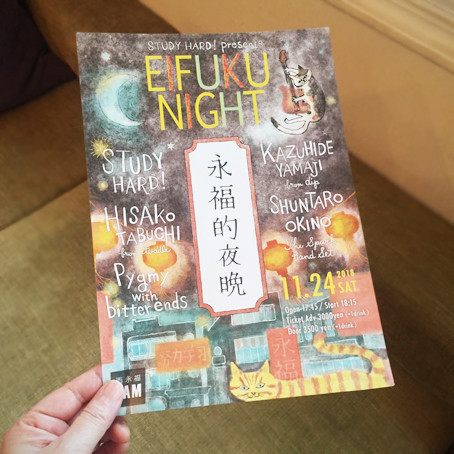 STUDY HARD! presents
EIFUKU
NIGHT
STUDY
HARD!
HISAKO
TABUCHI
from toddle
Pygmy
with
bitter ends
永福的夜晩
KAZUHIDE
YAMAJI
from dip
SHUNTARO
OKINO
The Space
Band Set
11.24 2018
SAT.
Open 17:45 / Start 18:15
Ticket Adv 3000yen (+1drink)
Door 3500 yen (+1drink)
永福
永福